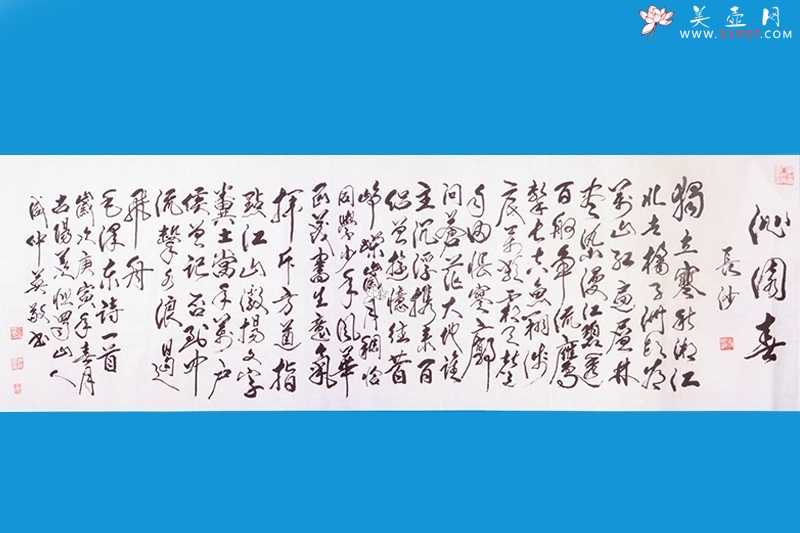 美壶网
WWW.51POT.COM
沁園春
長沙
獨立寒秋湘江
北去橘子洲頭看
萬山紅遍層林
盡染漫江碧透
百舸争流鷹
擊長空魚翔淺
底萬類霜天競
自由悵寥廓
問蒼茫大地誰
主沉浮携來百
侣曾遊憶往昔
崢嶸歲月稠恰
同學少年風華
正茂書生意氣
揮斥方遒指
點江山激揚文字
糞土當年萬户
侯曾記否到中
流擊水浪遏
飛舟
毛澤東詩一首
歲次庚寅年春月
古陽羡山人
仲英敬書